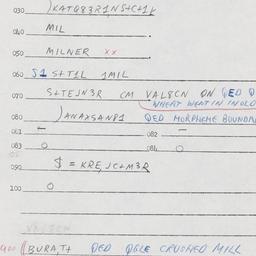 030 )KATQ83R1NS+C+1K
040 MIL
050 MILNER xx
060 S1 S+T1L 1MIL
070 S+TEJN3R CM VAL8CN ON QED
WHEAT WENT IN OLD
080 )ANAXSAN81 QED MORPHEME BOUNDAR
081 — 082 —
083 O 084 O
090 $ = KRE,JC+M3R
100 O
400 (BURA,T+ QED QBLE CRUSHED MILL